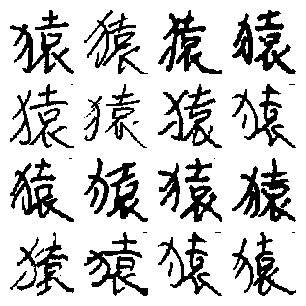 猿猿猿猿
猿猿猿猿
猿猿猿猿
猿猿猿猿